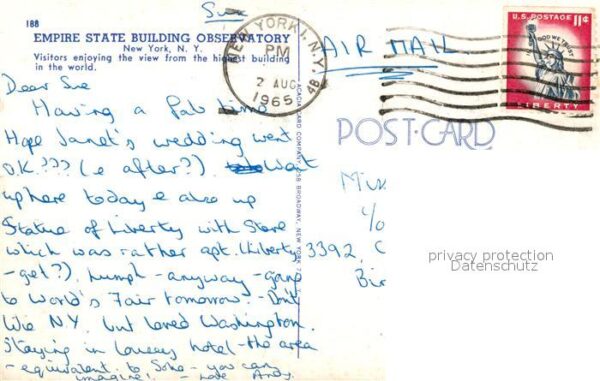 Sue
188
EMPIRE STATE BUILDING OBSERVATORY
New York, N. Y.
Visitors enjoying the view from the highest building
in the world.
NEW YORK 1, N.Y.
PM
2 AUG
1965
AIR MAIL
U.S. POSTAGE 11¢
IN GOD WE TRUST
LIBERTY
POST CARD
Dear Sue
Having a Fab time
Hope Janet's wedding went
O.K.??? (& after?). Went
up here today & also up
Statue of Liberty with Steve
which was rather apt. (Liberty
-get?). humph - anyway - going
to World's Fair tomorrow. - Don't
like N.Y. but loved Washington.
Staying in lousy hotel - the area
- equivalent to Soho - you can
imagine! - Love Andy.
c/o
3392, C
Bir
privacy protection
Datenschutz